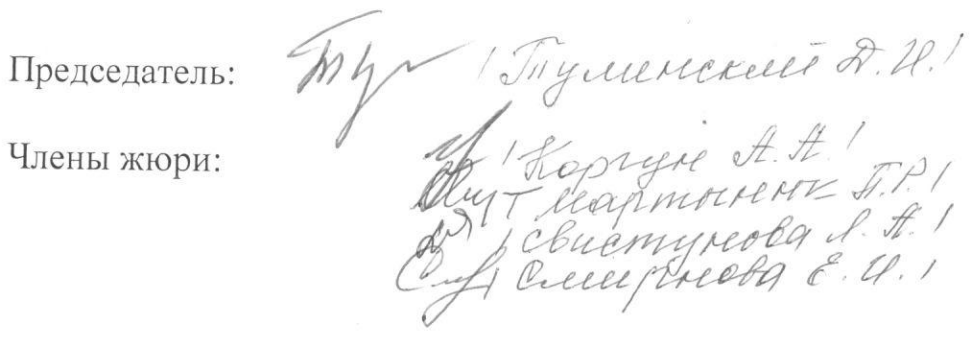 Председатель: /Туминский Д.И./
Члены жюри: /Коргун А.А./
Мартынюк П.Р./
/Свистунова Л.А./
/Смирнова Е.И./